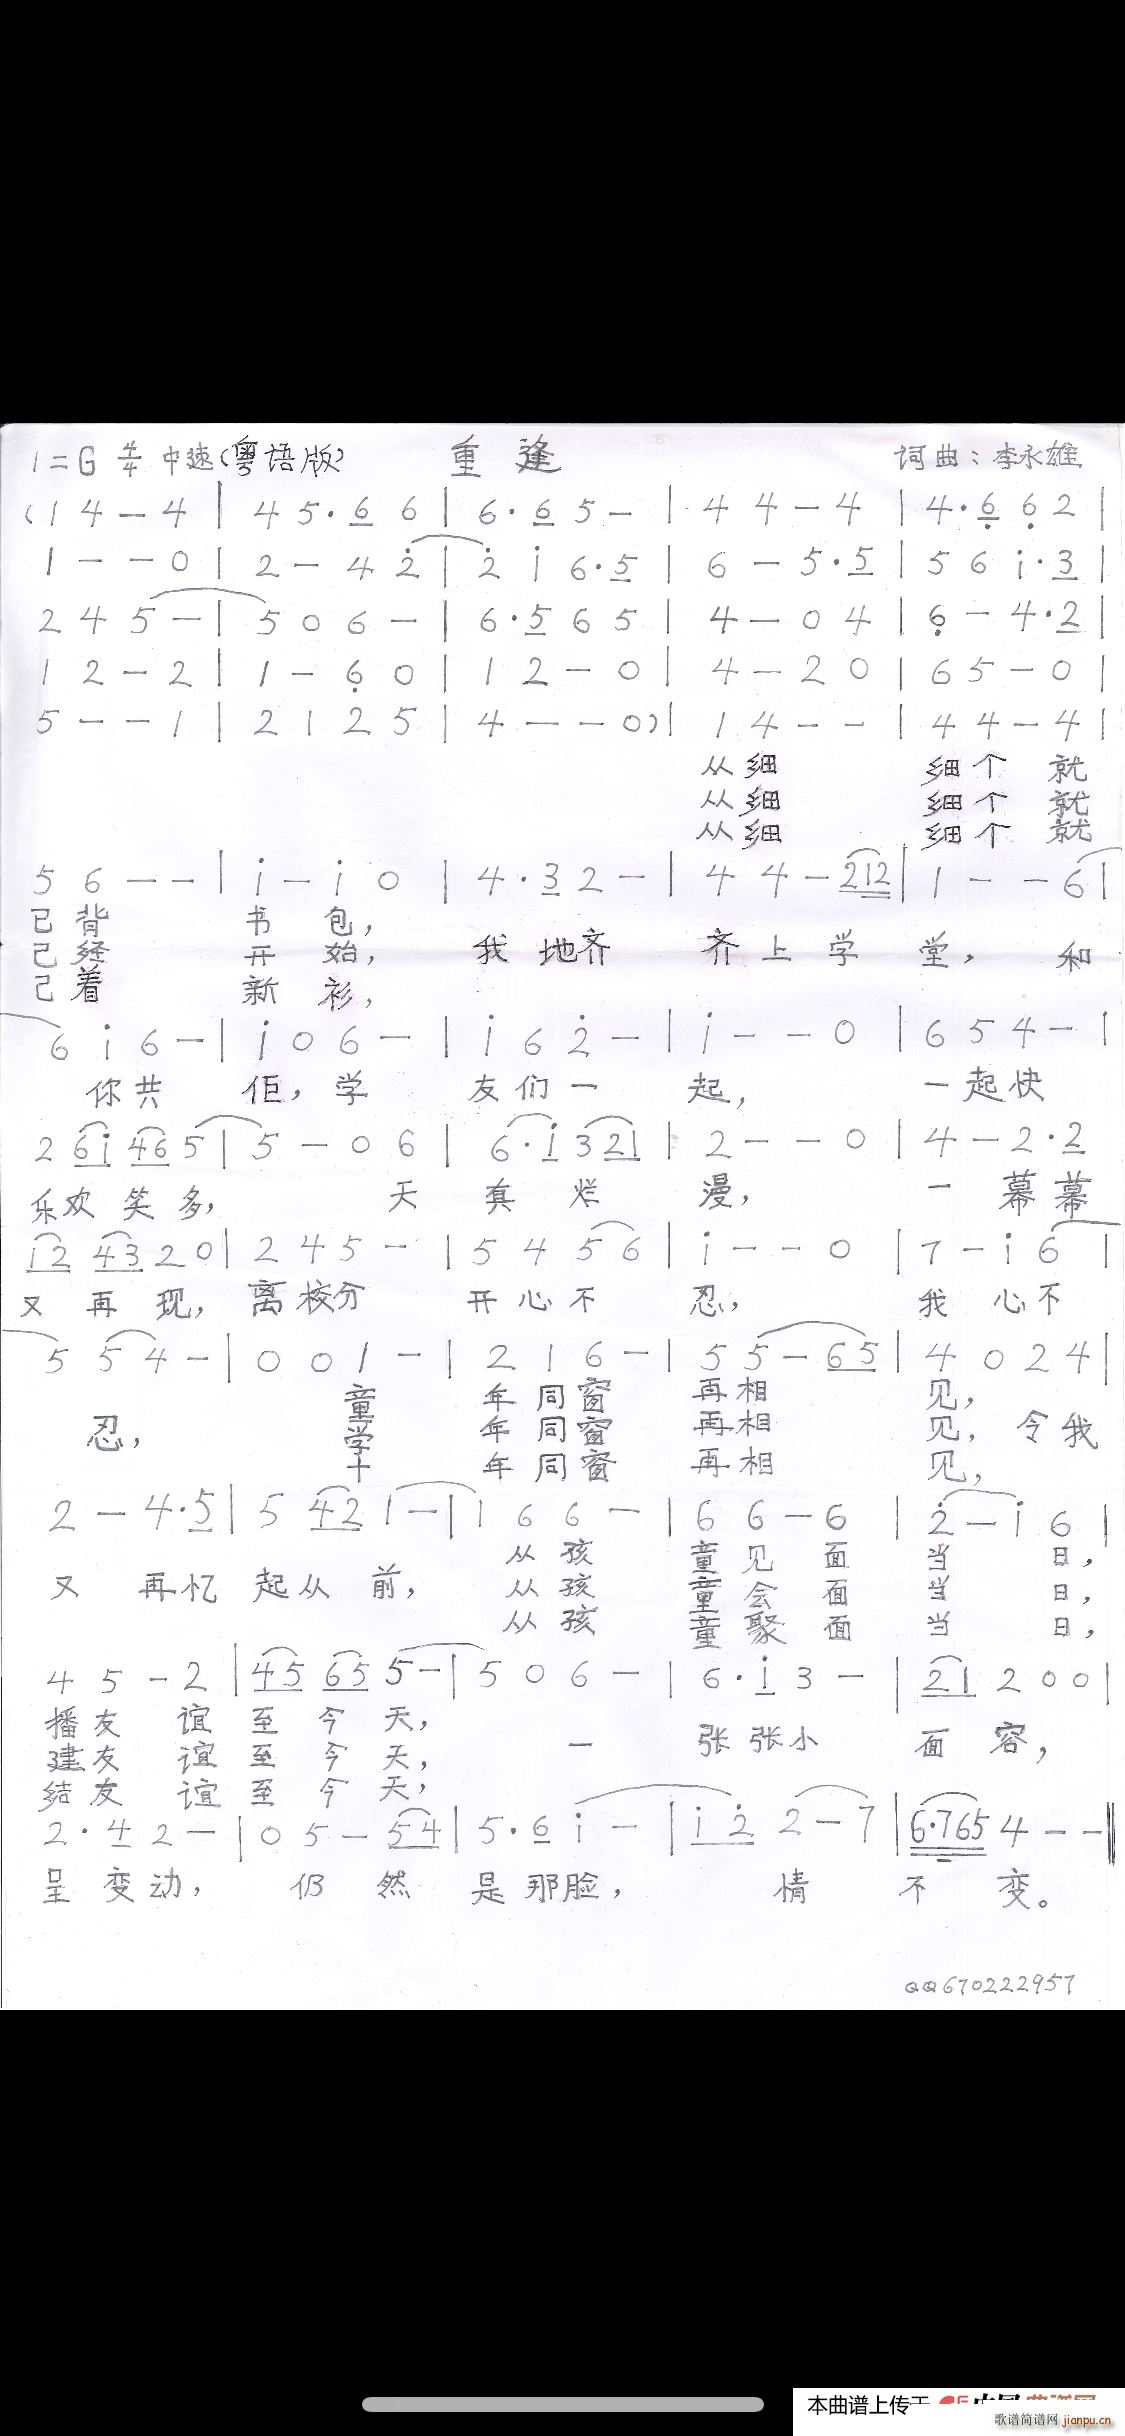 1=G 4/4 中速(粤语版) 重逢 词曲：李永雄
(1 4 — 4 | 4 5 · 6 6 | 6 · 6 5 — | 4 4 — 4 | 4 · 6̣ 6̣ 2 |
1 — — 0 | 2 — 4 2̇ | 2̇ i 6 · 5 | 6 — 5 · 5 | 5 6 i · 3 |
2 4 5 — | 5 0 6 — | 6 · 5 6 5 | 4 — 0 4 | 6̣ — 4 · 2 |
1 2 — 2 | 1 — 6̣ 0 | 1 2 — 0 | 4 — 2 0 | 6 5 — 0 |
5 — — 1 | 2 1 2 5 | 4 — — 0) | 1 4 — — | 4 4 — 4 |
从细 细个 就
从细 细个 就
从细 细个 就
5 6 — — | i — i 0 | 4 · 3 2 — | 4 4 — 212 | 1 — — 6 |
已背 书包，
已经 开始， 我地齐 齐上学堂， 和
已着 新衫，
6 i 6 — | i 0 6 — | i 6 2̇ — | i — — 0 | 6 5 4 — |
你共 佢，学 友们一 起， 一起快
2 6i 46 5 | 5 — 0 6 | 6 · i 3 21 | 2 — — 0 | 4 — 2 · 2
乐欢笑多， 天真烂漫， 一幕幕
i2 43 2 0 | 2 4 5 — | 5 4 5 6 | i — — 0 | 7 — i 6 |
又再现，离校分 开心不忍， 我心不
5 5 4 — | 0 0 1 — | 2 1 6 — | 5 5 — 65 | 4 0 2 4 |
童 年同窗 再相 见，
忍， 学 年同窗 再相 见，令我
十 年同窗 再相 见，
2 — 4 · 5 | 5 42 1 — | 1 6 6 — | 6 6 — 6 | 2̇ — i 6 |
从孩 童见面 当日，
又再忆起从前， 从孩 童会面 当日，
从孩 童聚面 当日，
4 5 — 2 | 45 65 5 — | 5 0 6 — | 6 · i 3 — | 21 2 0 0 |
播友谊至今天，
建友谊至今天， 一 张张小 面容，
结友谊至今天，
2 · 4 2 — | 0 5 — 54 | 5 · 6 i — | i 2̇ 2 — 7 | 6·765 4 — — ‖
呈变动， 仍然是那脸， 情不变。
QQ670222957
本曲谱上传于
歌谱简谱网 jianpu.cn